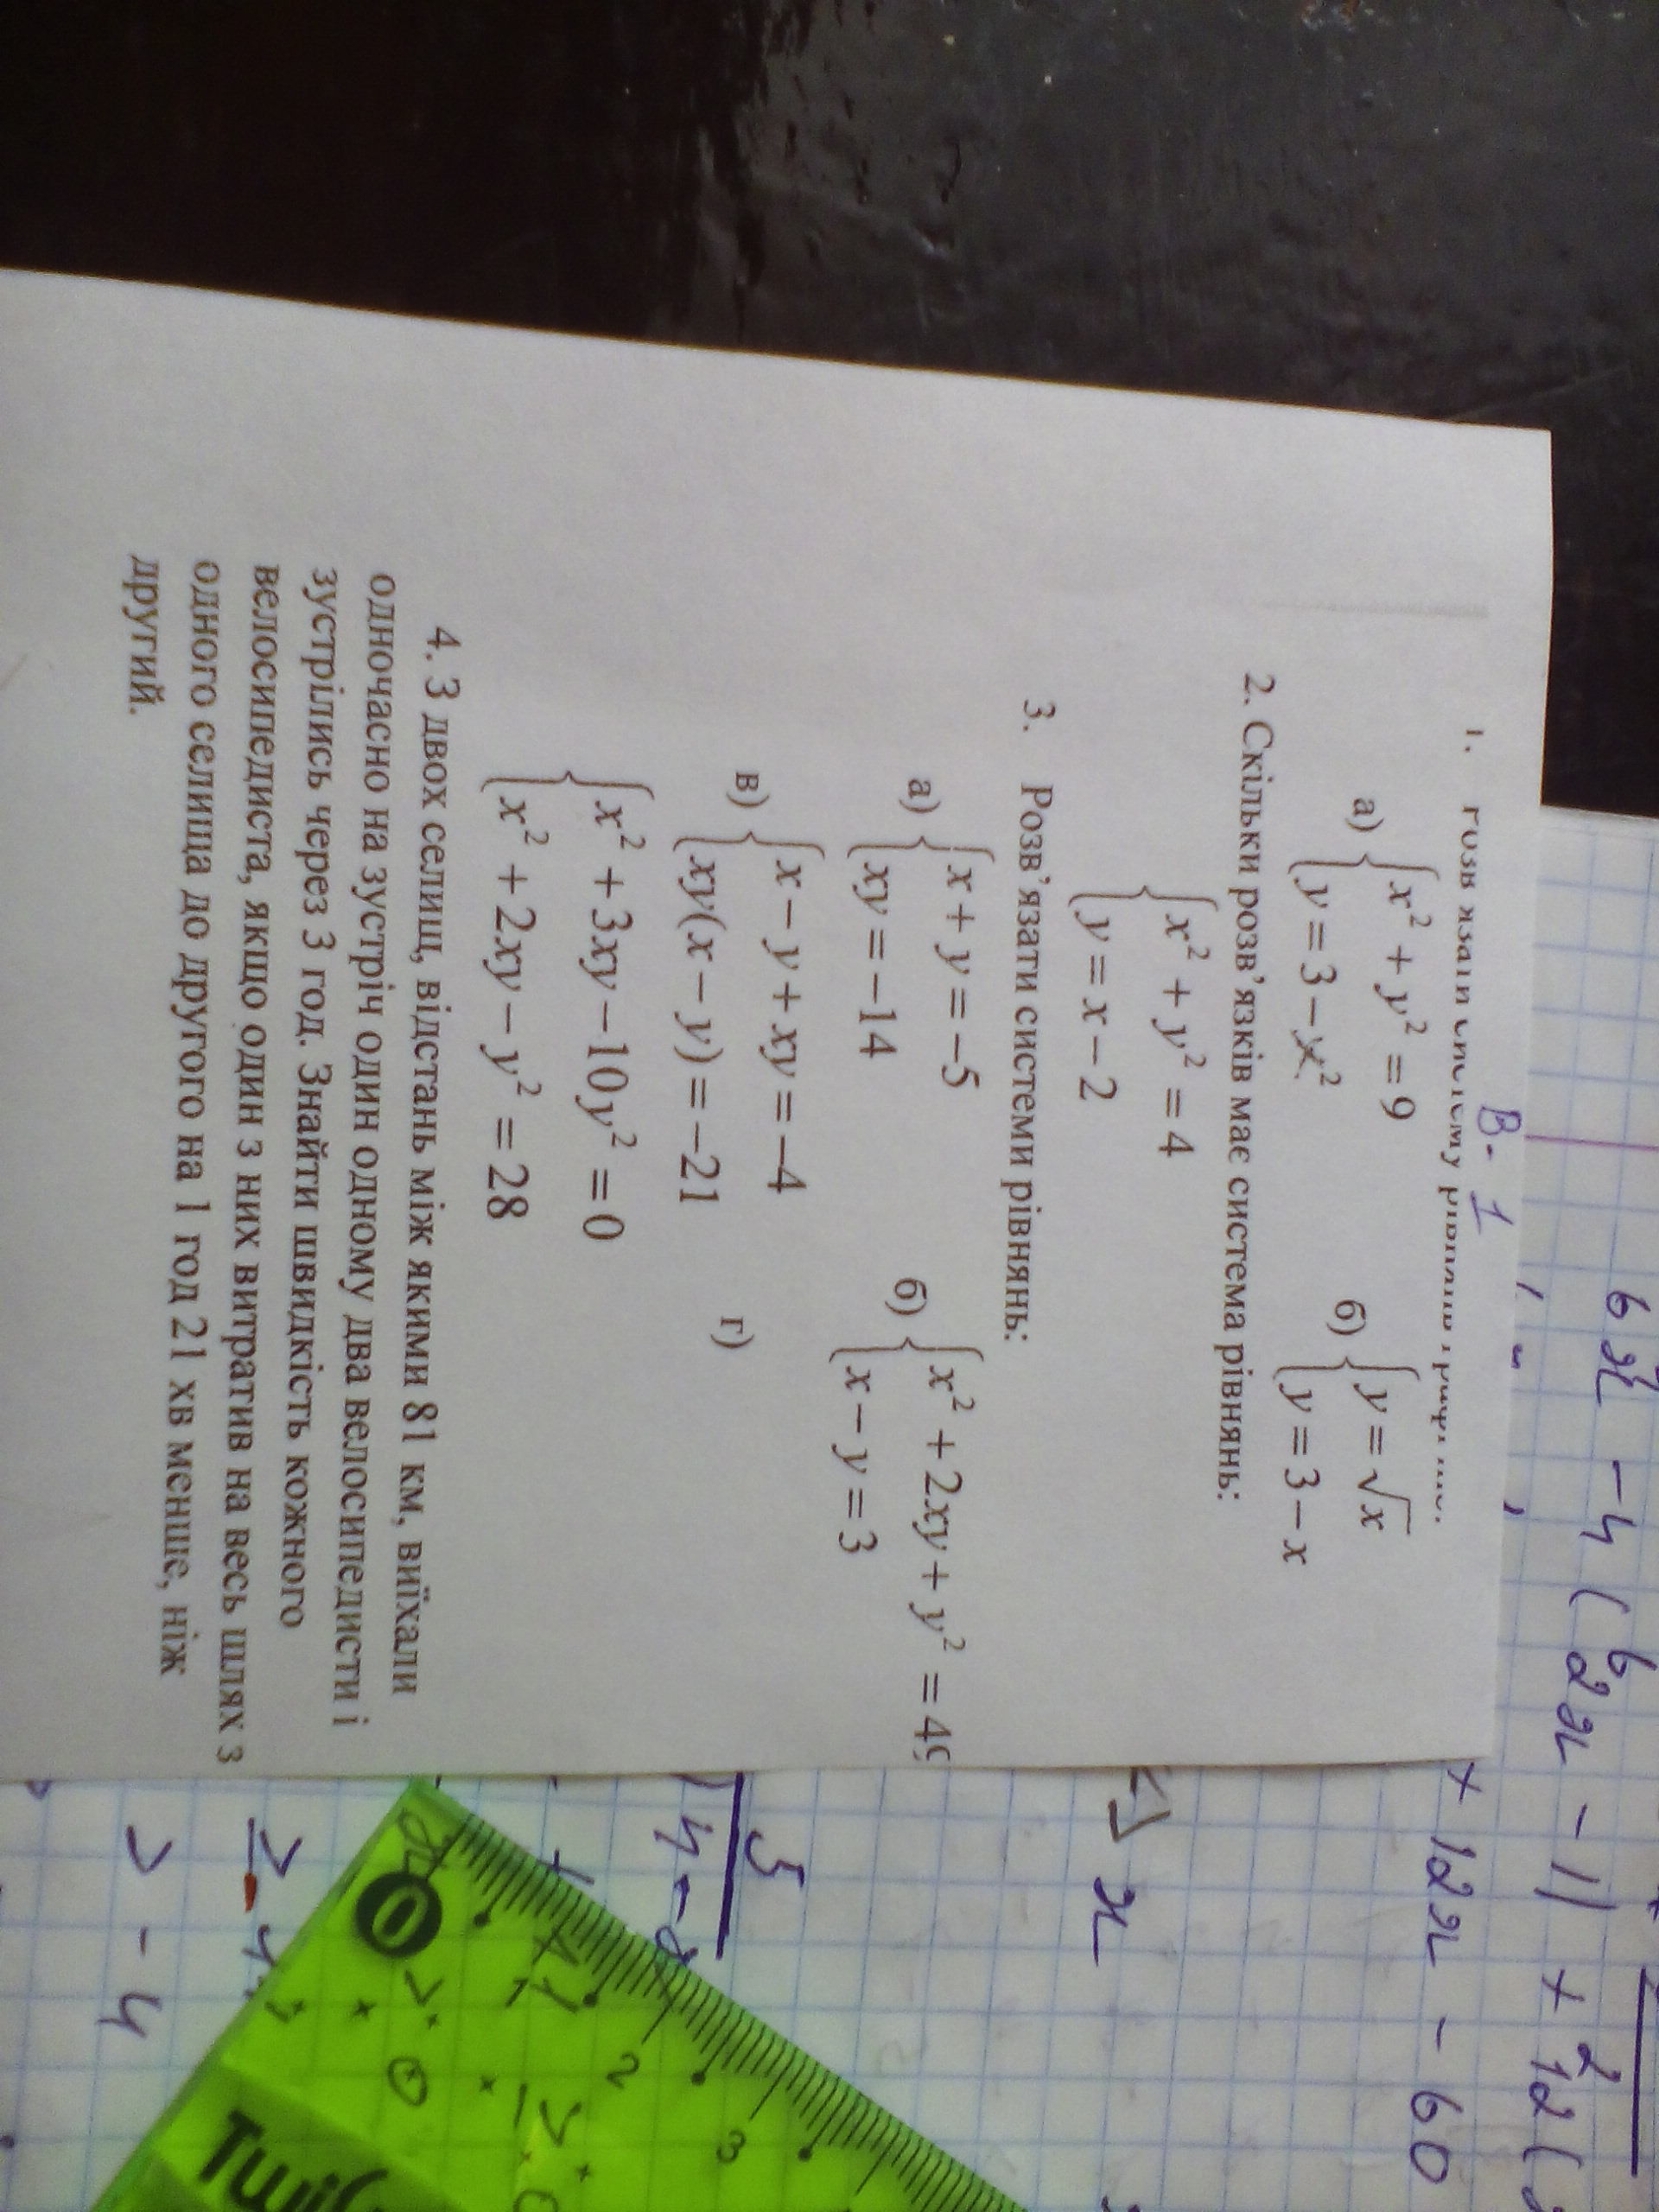 В-1
1. Розв'язати систему рівнянь
а) { x² + y² = 9
y = 3 − x²
б) { y = √x
y = 3 − x
2. Скільки розв'язків має система рівнянь:
{ x² + y² = 4
y = x − 2
3. Розв'язати системи рівнянь:
а) { x + y = −5
xy = −14
б) { x² + 2xy + y² = 49
x − y = 3
в) { x − y + xy = −4
xy(x − y) = −21
г)
{ x² + 3xy − 10y² = 0
x² + 2xy − y² = 28
4. З двох селищ, відстань між якими 81 км, виїхали
одночасно на зустріч один одному два велосипедисти і
зустрілись через 3 год. Знайти швидкість кожного
велосипедиста, якщо один з них витратив на весь шлях з
одного селища до другого на 1 год 21 хв менше, ніж
другий.
− 4 (2x − 1) + 12(
+ 12x − 60
x
5
> − 4
0 1 2 3